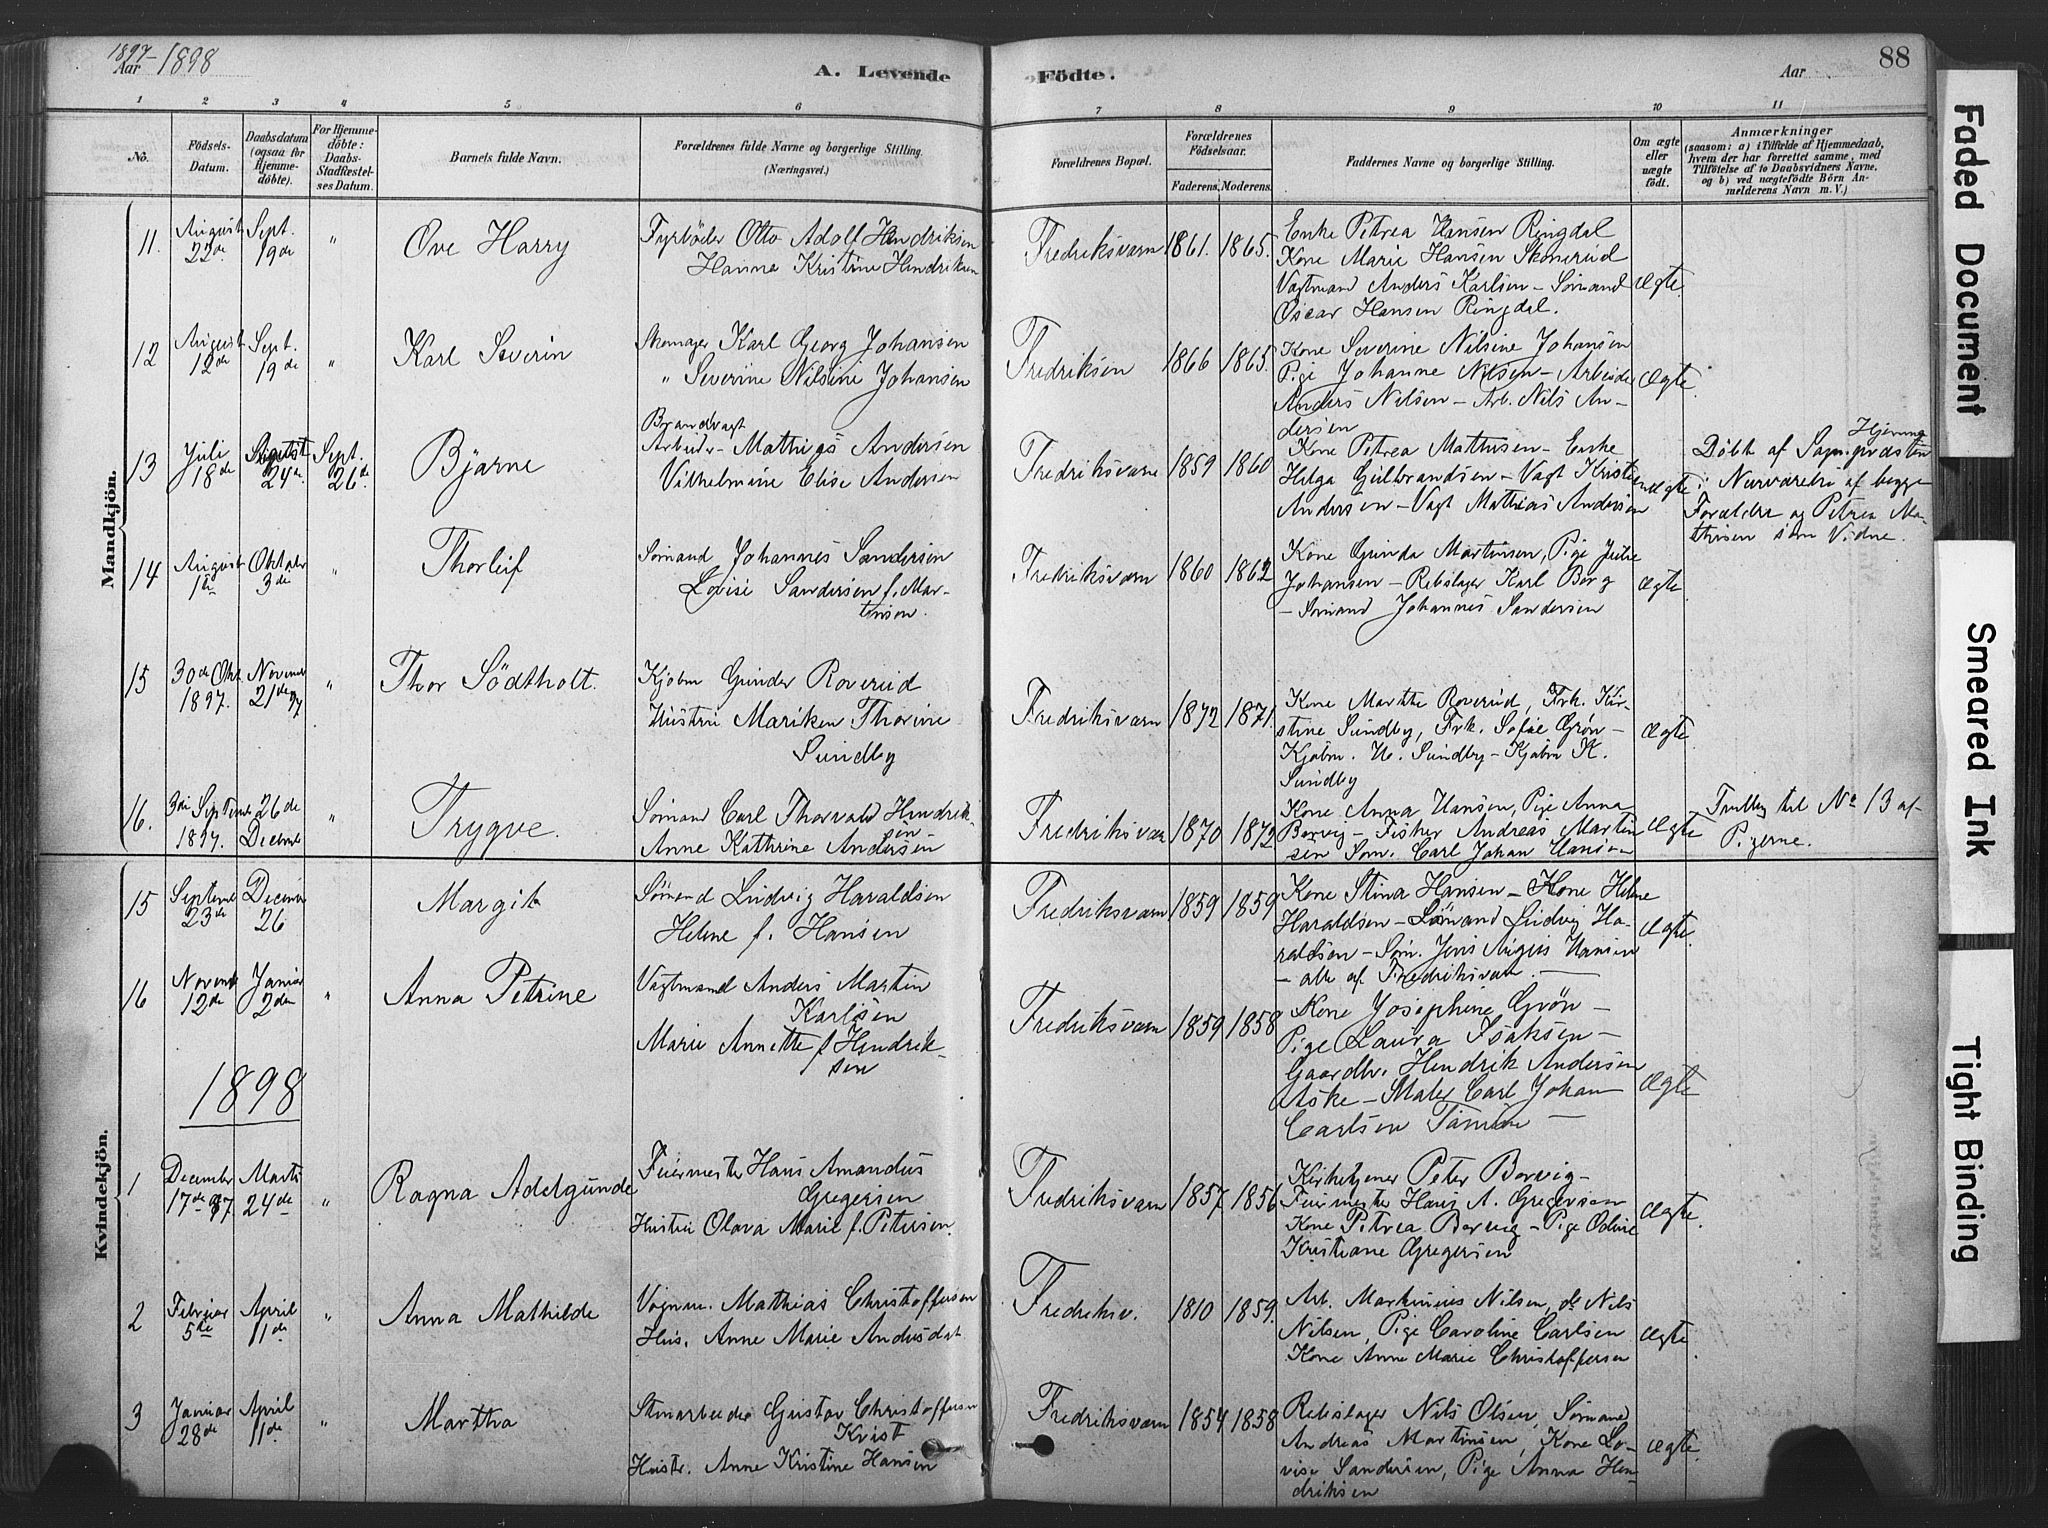 1897-1898
Aar
A. Levende
Födte.
Aar
88
1
2
3
4
5
6
7
8
9
10
11
No.
Födsels-
Datum.
Daabsdatum
(ogsaa for
Hjemme-
döbte).
For Hjemme-
döbte:
Daabs-
Stadfæstel-
ses Datum.
Barnets fulde Navn.
Forældrenes fulde Navne og borgerlige Stilling.
(Næringsvei.)
Forældrenes Bopæl.
Forældrenes
Födselsaar.
Faderens.
Moderens.
Faddernes Navne og borgerlige Stilling.
Om ægte
eller
uægte
födt.
Anmærkninger
(saasom: a) i Tilfælde af Hjemmedaab,
hvem der har forrettet samme, med
Tilföielse af to Daabsvidners Navne,
og b) ved uægtefödte Börn An-
melderens Navn m. V.)
Mandkjön.
11.
August
22de
Sept.
19de
"
Ove Harry
Fyrbøder Otto Adolf Hendriksen
Hanna Kristine Hendriksen
Fredriksværn
1861.
1865.
Enke Petrea Hansen Ringdal
Kone Marie Hansen Skonerud
Vagtmand Anders Karlsen - Sømand
Oscar Hansen Ringdal.
Ægte.
12
August
12de
Sept.
19de
"
Karl Severin
Skomager Karl Georg Johansen
" Severine Nilsine Johansen
Fredriksen
1866
1865.
Kone Severine Nilsine Johansen
Pige Johanne Nilsen - Arbeider
Anders Nilsen - Arb. Nils An-
dersen
Ægte.
13
Juli
18de
August
24de
Sept.
26de
Bjarne
Brandvagt
Arbeider - Mathias Andersen
Vilhelmine Elise Andersen
Fredriksværn
1859
1860
Kone Petrea Mathisen - Enke
Helga Gulbrandsen - Vagt Kristen
Andersen - Vagt Mathias Andersen
Ægte
Døbt af Sognepræsten Hjemme
i Nærværelse af begge
Forældre og Petrea Ma-
thisen som Vidne.
14
August
1ste
Oktober
3de
"
Thorleif
Sømand Johannes Sandersen
Lovise Sandersen f. Mar-
tinsen.
Fredriksværn
1860
1862
Kone Gunda Martinsen, Pige Julie
Johansen - Rebslager Karl Borg
- Sømand Johannes Sandersen
Ægte.
15
30de Okt.
1897.
November
21de 97
"
Thor Södtholt.
Kjøbm Gunder Roverud
Hustru Mariken Thorine
Sundby
Fredriksværn
1872
1871.
Kone Marthe Roverud, Frk. Kir-
stine Sundby, Frk. Sofie Grøn -
Kjøbm. H. Sundby - Kjøbm K.
Sundby
Ægte.
16.
3die Septemb
1897.
26de
Decembr
"
Trygve.
Sømand Carl Thorvald Hendrik-
sen
Anne Kathrine Andersen
Fredriksværn
1870
1872
Kone Anna Hansen, Pige Anna
Borvig - Fisker Andreas Martin
sen Søm. Carl Johan Hansen
Ægte
Tvilling til No 13 af
Pigerne.
Kvindekjön.
15
Septemb
23de
Decemb
26
Margit
Sømand Ludvig Haraldsen
Helene f. Hansen
Fredriksværn
1859
1859
Kone Stina Hansen - Kone Helene
Haraldsen - Sømand Ludvig Ha-
raldsen - Søm. Jens August Hansen
- alle af Fredriksværn.
Ægte.
16
Novemb
12de
Januar
2den
"
Anna Petrine
Vagtmand Anders Martin
Karlsen
Marie Annette f Hendrik-
sen
Fredriksværn
1859
1858
Kone Josephine Grön -
Pige Laura Isaksen -
Gaardbr. Hendrik Andersen
Aske - Maler Carl Johan
Carlsen
Ægte
1898
1
December
17de 97
Marts
24de
"
Ragna Adelgunde
Feiermester Hans Amandus
Gregersen
Hustru Olava Marie f. Petersen.
Fredriksværn
1857
1856
Kirketjener Peter Borvig -
Feiermester Hans A. Gregersen
Kone Petrea Borvig - Pige Odine
Kristiane Gregersen
Ægte.
2
Februar
5te
April
11de
"
Anna Mathilde
Vognm. Mathias Christoffersen
Hus. Anne Marie Andersdat
Fredriksv.
1810
1859.
Arb. Martinius Nilsen, do Nils
Nilsen, Pige Caroline Carlsen
Kone Anne Marie Christoffersen
Ægte.
3
Januar
28de
April
11de
"
Martha
Stenarbeider Gustav Christoffersen
Kvist
Hustr. Anne Kristine Hansen
Fredriksværn
1854
1858
Rebslager Nils Olsen, Sømand
Andreas Martinsen, Kone Lo-
vise Sandersen, Pige Anna Hen
driksen
Ægte.
Faded Document
Smeared Ink
Tight Binding